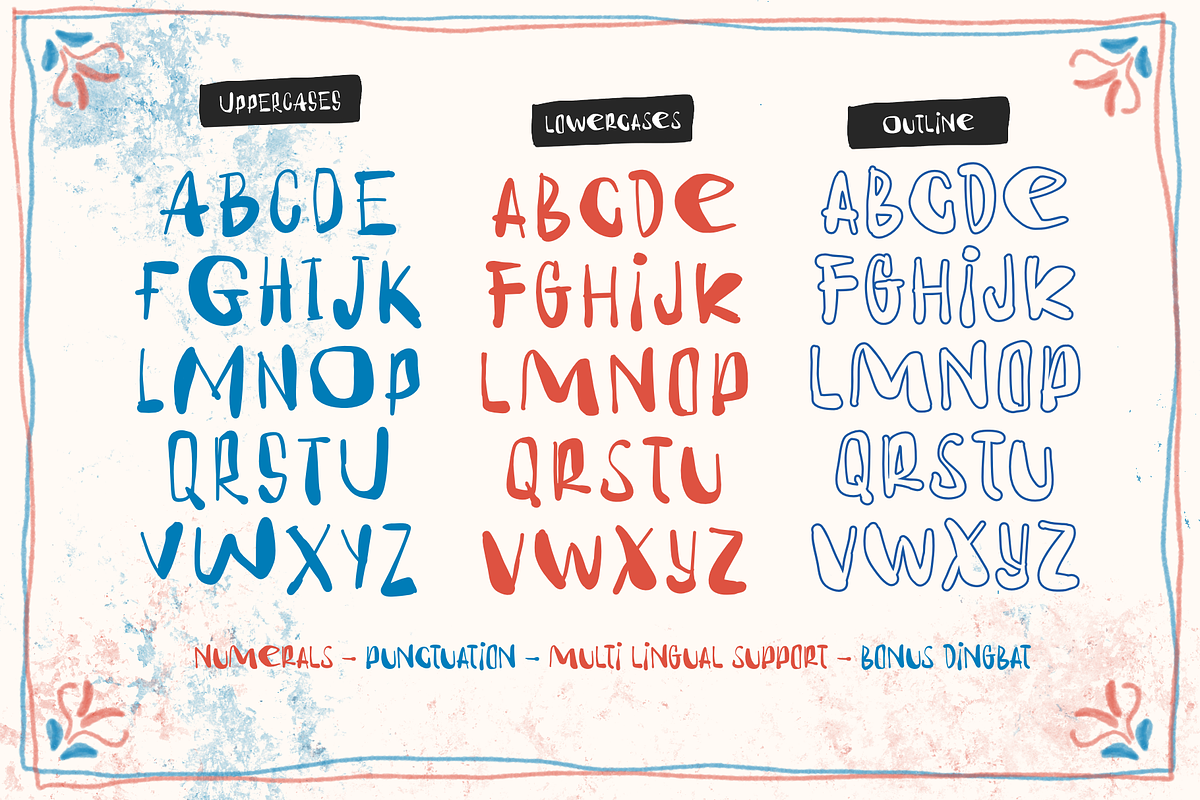 UPPERCASES
ABCDE
FGHIJK
LMNOP
QRSTU
VWXYZ
LOWeRCASeS
ABCDe
FGHiJK
LMNOP
QRSTU
VWXyZ
OUTLiNe
ABCDe
FGHiJK
LMNOP
QRSTU
VWXyZ
NUMeRALS – PUNCTUATiON – MULTi LiNGUAL SUPPORT – BONUS DiNGBAT